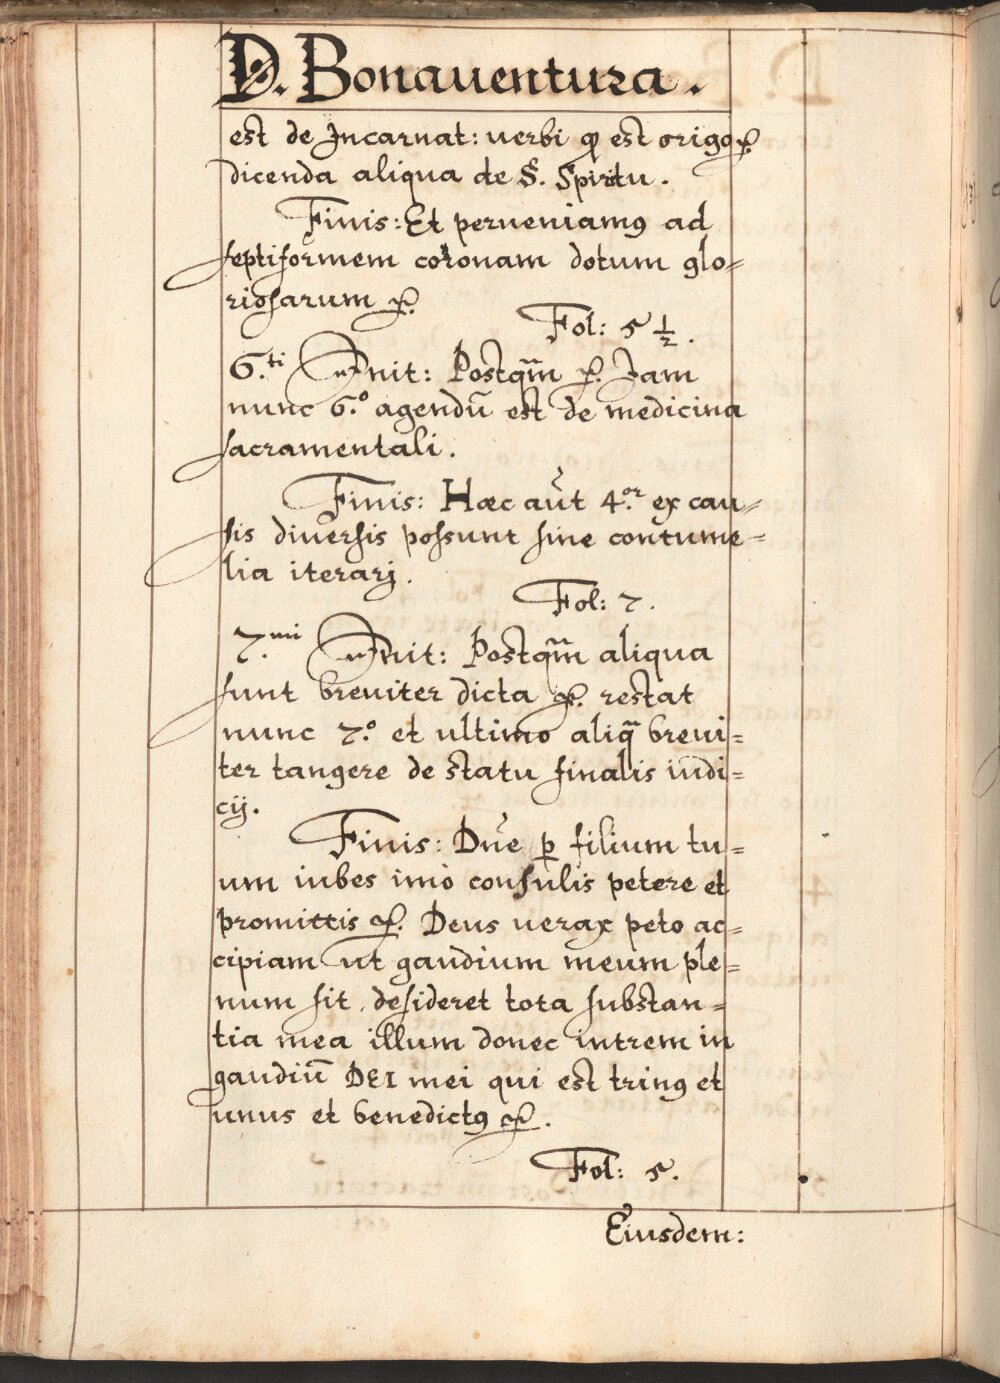 D. Bonauentura.
est de Incarnat: uerbi qͻ est origo ꝛc.
dicenda aliqua de S. Spiritu.
Finis: Et perueniamꝰ ad
septiformem coronam dotum glo=
riosarum ꝛc.
Fol: 5 ½.
6.ti Init: Postqm̃ ꝛc. Jam
nunc 6.o agendũ est de medicina
sacramentali.
Finis: Hæc aut̃ 4.or ex cau=
sis diuersis possunt sine contume=
lia iterarj.
Fol: 7.
7.mi Init: Postqm̃ aliqua
sunt breuiter dicta ꝛc. restat
nunc 7.o et ultimo aliq̃ breui=
ter tangere de statu finalis iudi=
cij.
Finis: Dñe ꝑ filium tu=
um iubes imo consulis petere et
promittis ꝛc. Deus uerax peto ac=
cipiam ut gaudium meum ple=
num sit, desideret tota substan=
tia mea illum donec intrem in
gaudiũ DEI mei qui est trinꝰ et
unus et benedictꝰ ꝛc.
Fol: 5.
Eiusdem: